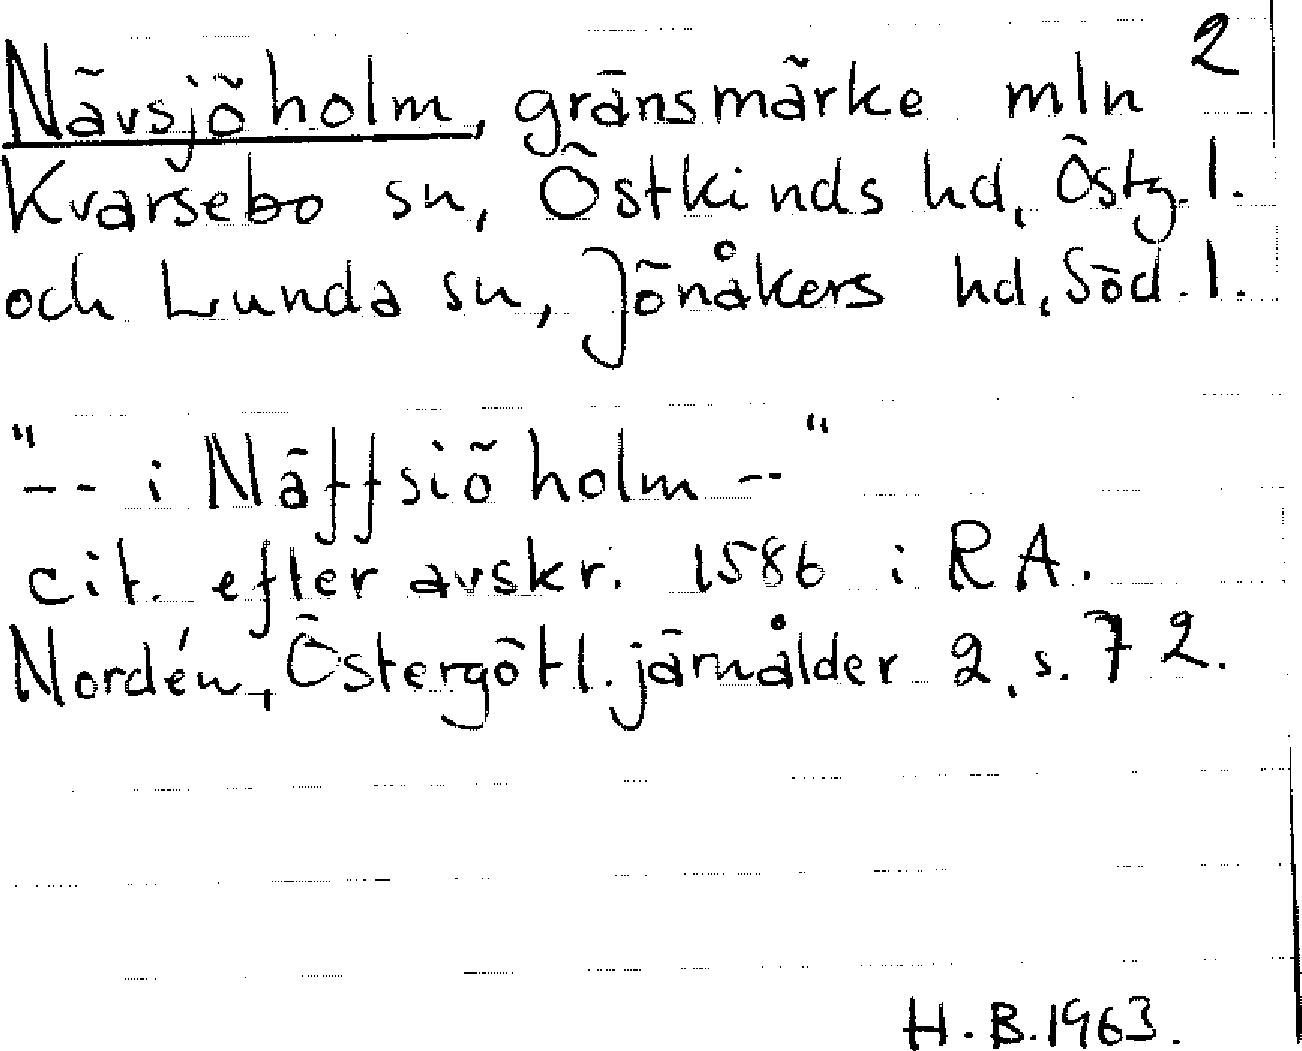 2
Nävsjöholm, gränsmärke mln
Kvarsebo sn, Östkinds hd, Östg. l.
och Lunda sn, Jönåkers hd, Söd. l.
"-- i Näffsiöholm --"
cit. efter avskr. 1586 i RA.
Nordén, Östergötl. järnålder 2, s. 72.
H.B. 1963.